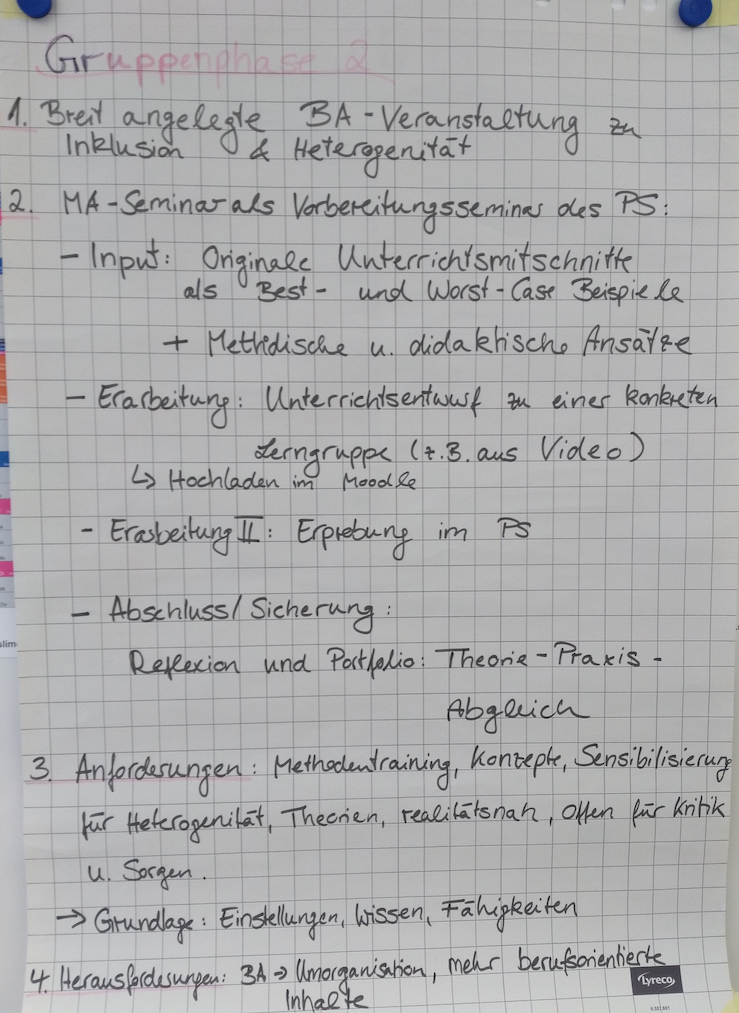 Gruppenphase 2
1. Breit angelegte BA-Veranstaltung zu
Inklusion & Heterogenität
2. MA-Seminar als Vorbereitungsseminar des PS:
- Input: Originale Unterrichtsmitschnitte
als Best- und Worst-Case Beispiele
+ Methidische u. didaktische Ansätze
- Erarbeitung: Unterrichtsentwurf zu einer konkreten
Lerngruppe (z.B. aus Video)
↳ Hochladen im Moodle
- Erarbeitung II: Erprobung im PS
- Abschluss/Sicherung:
Reflexion und Portfolio: Theorie-Praxis-
Abgleich
3. Anforderungen: Methodentraining, Konzepte, Sensibilisierung
für Heterogenität, Theorien, realitätsnah, Offen für Kritik
u. Sorgen.
→ Grundlage: Einstellungen, Wissen, Fähigkeiten
4. Herausforderungen: BA → Umorganisation, mehr berufsorientierte
Inhalte
lyreco